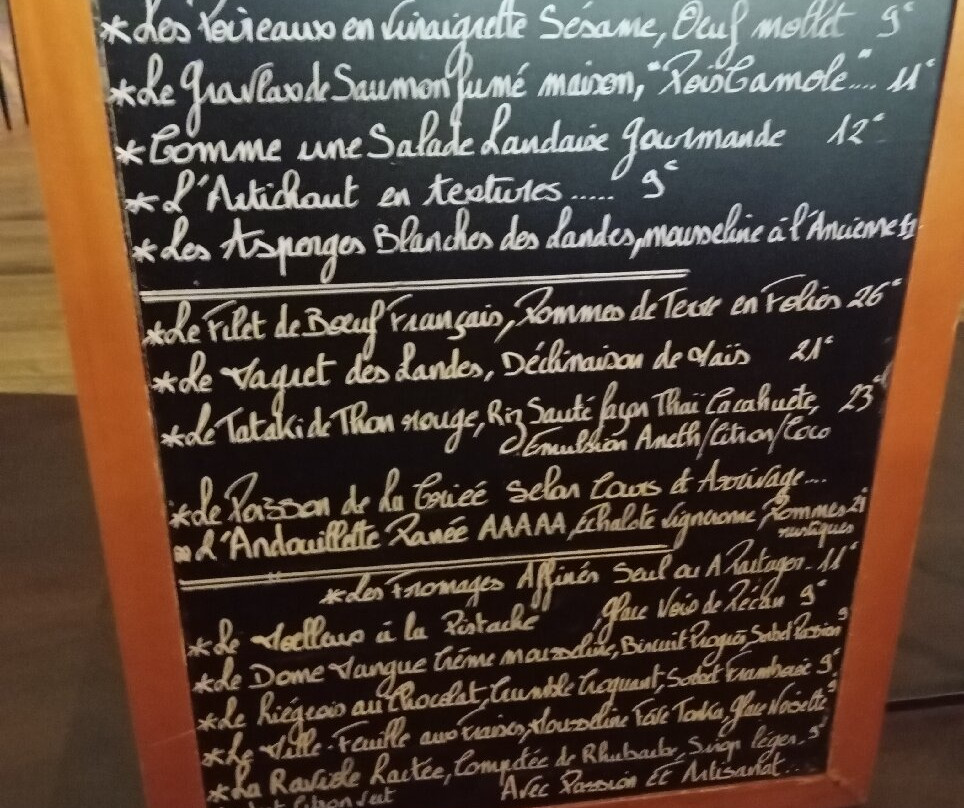 *Les Poireaux en Vinaigrette Sésame, Oeuf mollet 9€
*Le Gravlax de Saumon fumé maison, "PoisCamole".... 11€
*Comme une Salade Landaise gourmande 12€
*L'Artichaut en textures..... 9€
*Les Asperges Blanches des Landes, mousseline à l'Ancienne 12
*Le Filet de Bœuf Français, Pommes de Terre en Folies 26€
*Le Maquet des Landes, Déclinaison de Maïs 21€
*Le Tataki de Thon rouge, Riz Sauté façon Thaï Cacahuète, 23€
Emulsion Aneth/Citron/Coco
*Le Poisson de La Criée selon Cours et Arrivage...
*L'Andouillette Panée AAAAA, Echalote vigneronne, Pommes 21
rustiques
*Les Fromages Affinés Seul ou A Partager. 11€
*Le Moelleux à la Pistache, glace Noix de Pécan 9€
*Le Dome Mangue Crème mousseline, Biscuit Sorbet Passion 9
*Le Liégeois au Chocolat, Crumble Croquant, Sorbet Framboise 9€
*Le Mille-Feuille aux Fraises, Mousseline Fève Tonka, glace Noisette 9
*La Raviole Lactée, Compotée de Rhubarbe, léger. 9
Avec Passion Et Artisanat...